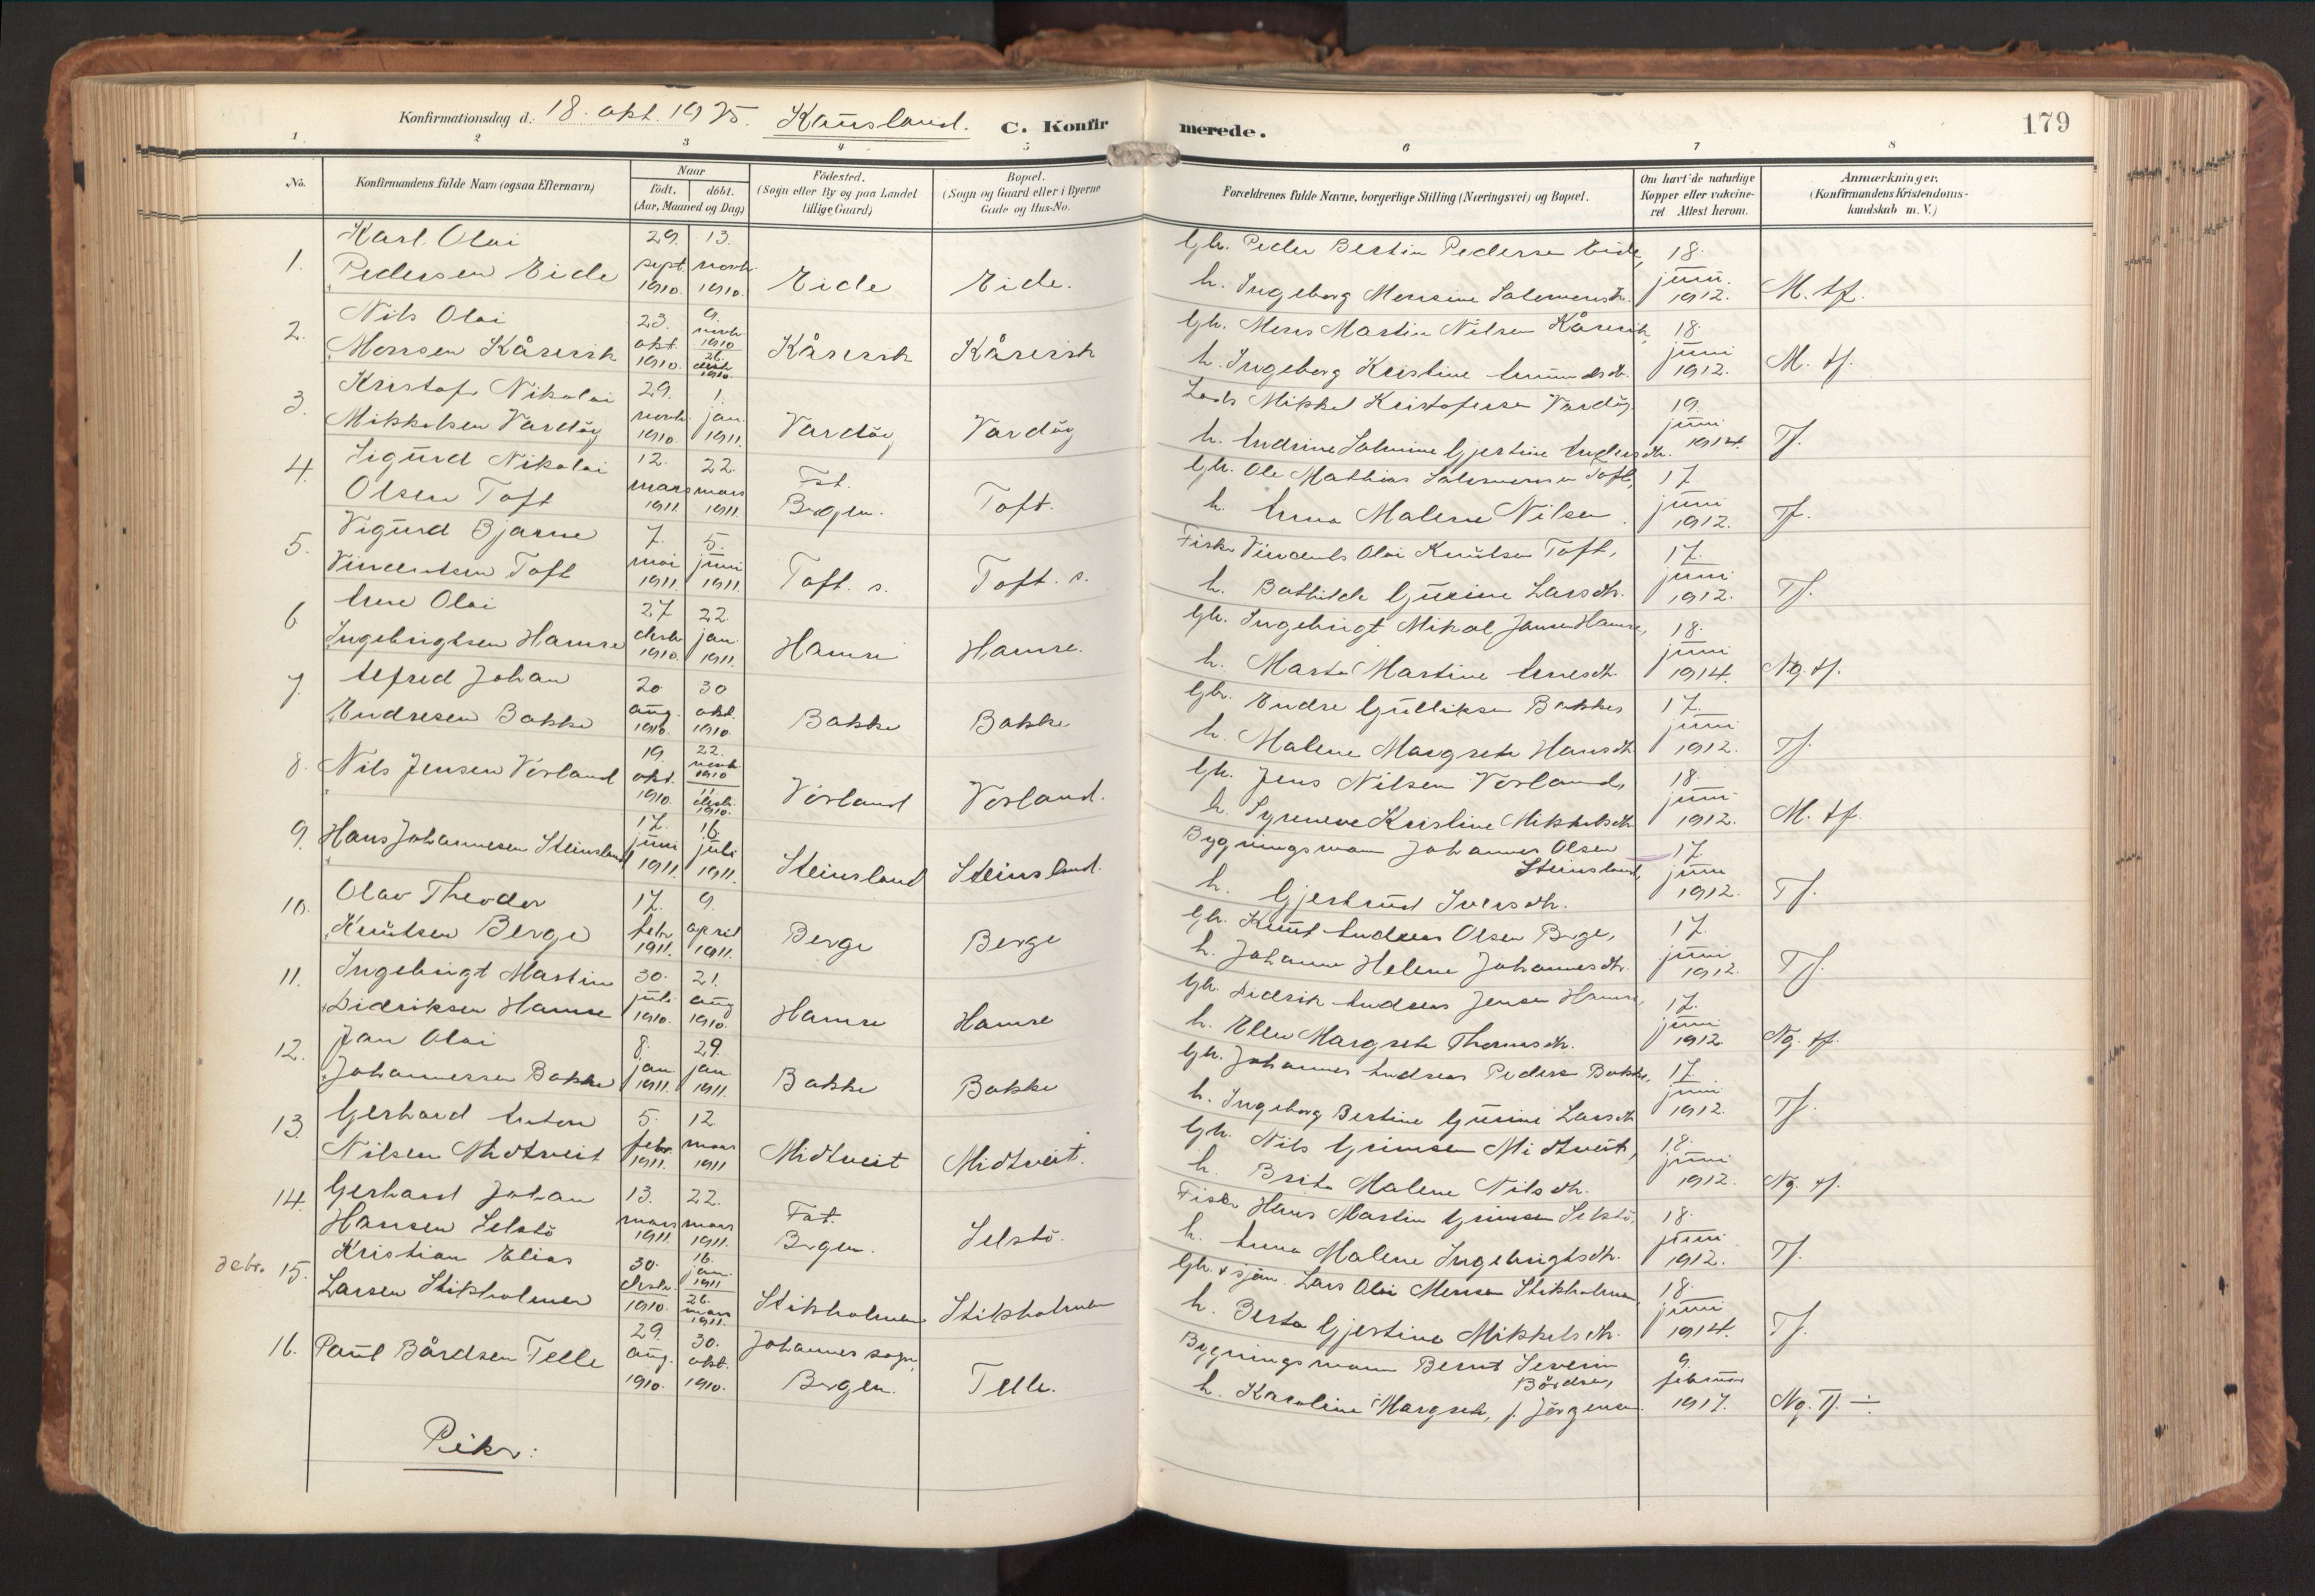 Konfirmationsdag d. 18. okt. 1925. Kausland. C. Konfirmerede. 179
1 2 3 4 5 6 7 8
No. Konfirmandens fulde Navn (ogsaa Efternavn) Naar födt. döbt. (Aar, Maaned og Dag) Födested. (Sogn eller By og paa Landet tillige Gaard) Bopæl. (Sogn og Gaard eller i Byerne Gade og Hus-No. Forældrenes fulde Navne, borgerlige Stilling (Næringsvei) og Bopæl. Om havt de naturlige Kopper eller vakcineret Attest herom. Anmærkninger. (Konfirmandens Kristendomskundskab m. V.)
1. Karl Olai Pedersen Eide 29. sept. 1910. 13. novb. 1910. Eide Eide. Gbr. Peder Bertin Pedersen Eide, h. Ingeborg Monsine Salomonsdtr. 18. juni 1912. M. tf.
2. Nils Olai Monsen Kårevik 23. okt. 1910. 9. novb. 1910 26. desb. 1910. Kårevik Kårevik Gbr. Mons Martin Nilsen Kårevik, h. Ingeborg Kristine 18. juni 1912. M. tf.
3. Kristofer Nikolai Mikkelsen Vardöy 29. novb. 1910. 1. jan. 1911. Vardöy Vardöy Lods Mikkel Kristofersen Vardöy h. Andrine Salmine Gjertine Andersdtr. 19. juni 1914. Tf.
4. Sigurd Nikolai Olsen Toft 12. mars 1911. 22. mars 1911. Fst. Bergen. Toft. Gbr. Ole Mathias Salomonsen Toft, h. Anna Malene Nilsen. 17. juni 1912. Tf.
5. Vigurd Bjarne Vincentsen Toft 7. mai 1911. 5. juni 1911. Toft. s. Toft. s. Fisker Vincents Olai Knutsen Toft, h. Bothilde Gurine Larsdtr. 17. juni 1912. Tf.
6 Arne Olai Ingebrigtsen Hamre 27. desb. 1910. 22. jan. 1911. Hamre Hamre. Gbr. Ingebrigt Mikal Jansen Hamre, h. Marta Martine Arnesdtr. 18. juni 1914. Ng. tf.
7. Alfred Johan Endresen Bakke 20 aug. 1910. 30 okt. 1910. Bakke Bakke Gbr. Endre Gulliksen Bakke, h. Malene Margrete Hansdtr. 17. juni 1912. Tf.
8. Nils Jensen Vorland 19. okt. 1910. 22. novb. 1910 11. desb. 1910. Vorland Vorland. Gbr. Jens Nilsen Vorland, h. Syneve Kristine Mikkelsdtr. 18. juni 1912. M. tf.
9. Hans Johannesen Steinsland 17. juni 1911. 16. juli 1911. Steinsland Steinsland. Bygningsmann Johannes Olsen Steinsland, h. Gjertrud Iversdtr. 17. juni 1912. Tf.
10. Olav Theodor Knutsen Berge 17. febr. 1911. 9. april 1911. Berge Berge Gbr. Knut Andreas Olsen Berge, h. Johanne Helene Johannesdtr. 17. juni 1912. Tf.
11. Ingebrigt Martin Didriksen Hamre 30. juli 1910. 21. aug 1910. Hamre Hamre Gbr. Didrik Andreas Jensen Hamre, h. Ellen Margrete Thomasdtr. 17. juni 1912 Ng. tf.
12. Jan Olai Johannessen Bakke 8. jan. 1911. 29. jan. 1911. Bakke Bakke Gbr. Johannes Andreas Pedersen Bakke, h. Ingeborg Bertine Gurine Larsdtr. 17. juni 1912. Tf.
13. Gerhard Anton Nilsen Midtveit 5. febr. 1911. 12. mars 1911 Midtveit Midtveit. Gbr. Nils Grimsen Midtveit, h. Brita Malene Nilsdtr. 18. juni 1912. Ng. tf.
14. Gerhard Johan Hansen Selstö 13. mars 1911. 22. mars 1911. Fst. Bergen. Selstö. Fisker Hans Martin Grimsen Selstö, h. Anna Malene Ingebrigtsdtr. 18. juni 1912. Tf.
15. Kristian Elias Larsen Stikholmen 30. desbr. 1910. 16. jan. 1911 26. mars 1911. Stikholmen Stikholmen Gbr. & sjöm. Lars Olai Monsen Stikholmen, h. Berta Gjertine Mikkelsdtr. 18. juni 1914. Tf.
16. Paul Bårdsen Telle 29. aug. 1910. 30. okt. 1910. Johannes sogn, Bergen. Telle. Bygningsmann Bernt Severin Bårdsen, h. Karoline Margrete, f. Jörgensen. 9. februar 1917. Ng. Tf. ÷
Piker: